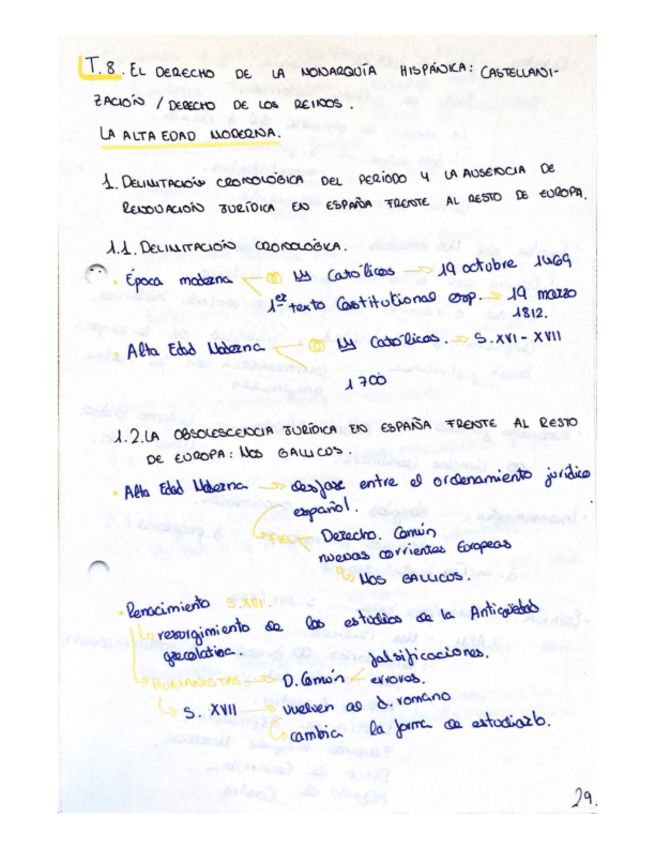 T.8. EL DERECHO DE LA MONARQUÍA HISPÁNICA: CASTELLANI-
ZACIÓN / DERECHO DE LOS REINOS.
LA ALTA EDAD MODERNA.
1. DELIMITACIÓN CRONOLÓGICA DEL PERÍODO Y LA AUSENCIA DE
RENOVACIÓN JURÍDICA EN ESPAÑA FRENTE AL RESTO DE EUROPA.
1.1. DELIMITACIÓN CRONOLÓGICA.
· Época moderna → MM Católicos → 19 octubre 1469
1er texto Costitutional esp. → 19 marzo
1812.
· Alta Edad Moderna → MM Católicos. → S. XVI - XVII
1700
1.2. LA OBSOLESCENCIA JURÍDICA EN ESPAÑA FRENTE AL RESTO
DE EUROPA: MOS GALLICUS.
· Alta Edad Moderna → desfase entre el ordenamiento jurídico
español.
Derecho. Común
nuevas corrientes Europeas
↳ MOS GALLICUS.
· Renacimiento S. XVI.
↳ resurgimiento de los estudios de la Antigüedad
grecolatina.
falsificaciones.
↳ HUMANISTAS → D. Común errores.
↳ S. XVII → vuelven al d. romano
↳ cambia la forma de estudiarlo.
29.